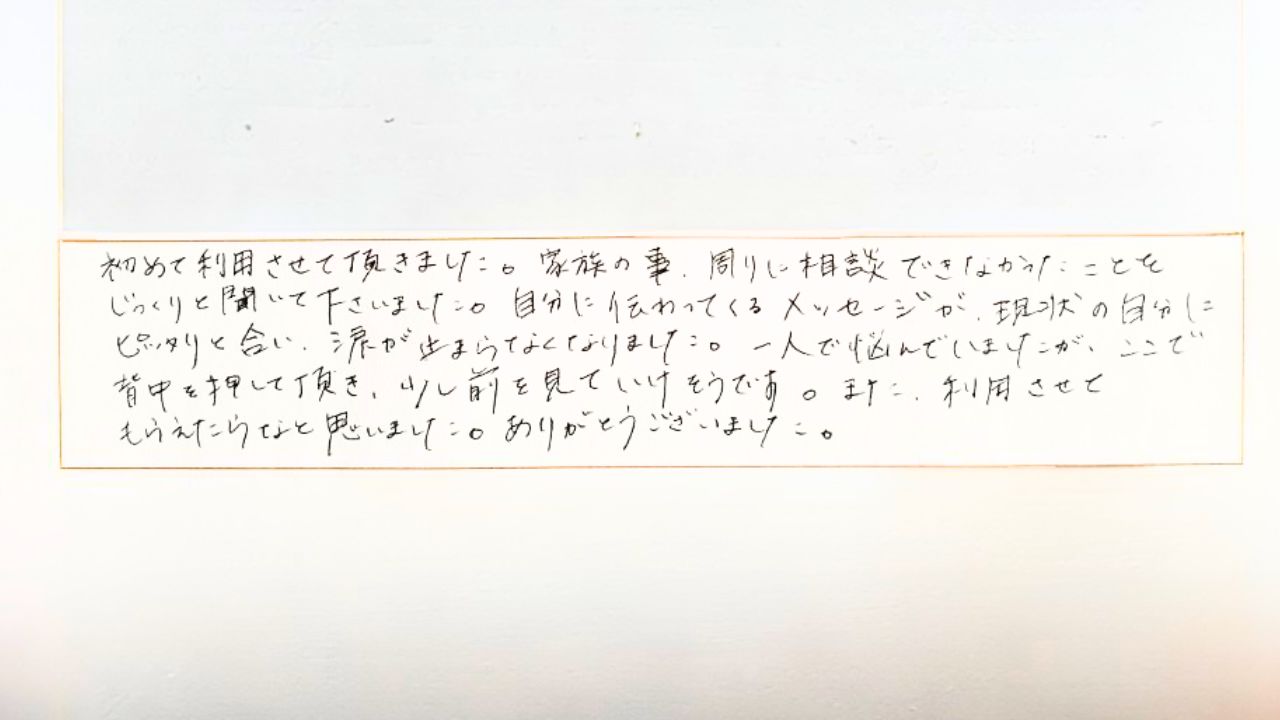 初めて利用させて頂きました。家族の事、周りに相談できなかったことを
じっくりと聞いて下さいました。自分に伝わってくるメッセージが、現状の自分に
ピッタリと合い、涙が止まらなくなりました。一人で悩んでいましたが、ここで
背中を押して頂き、少し前を見ていけそうです。また、利用させて
もらえたらなと思いました。ありがとうございました。